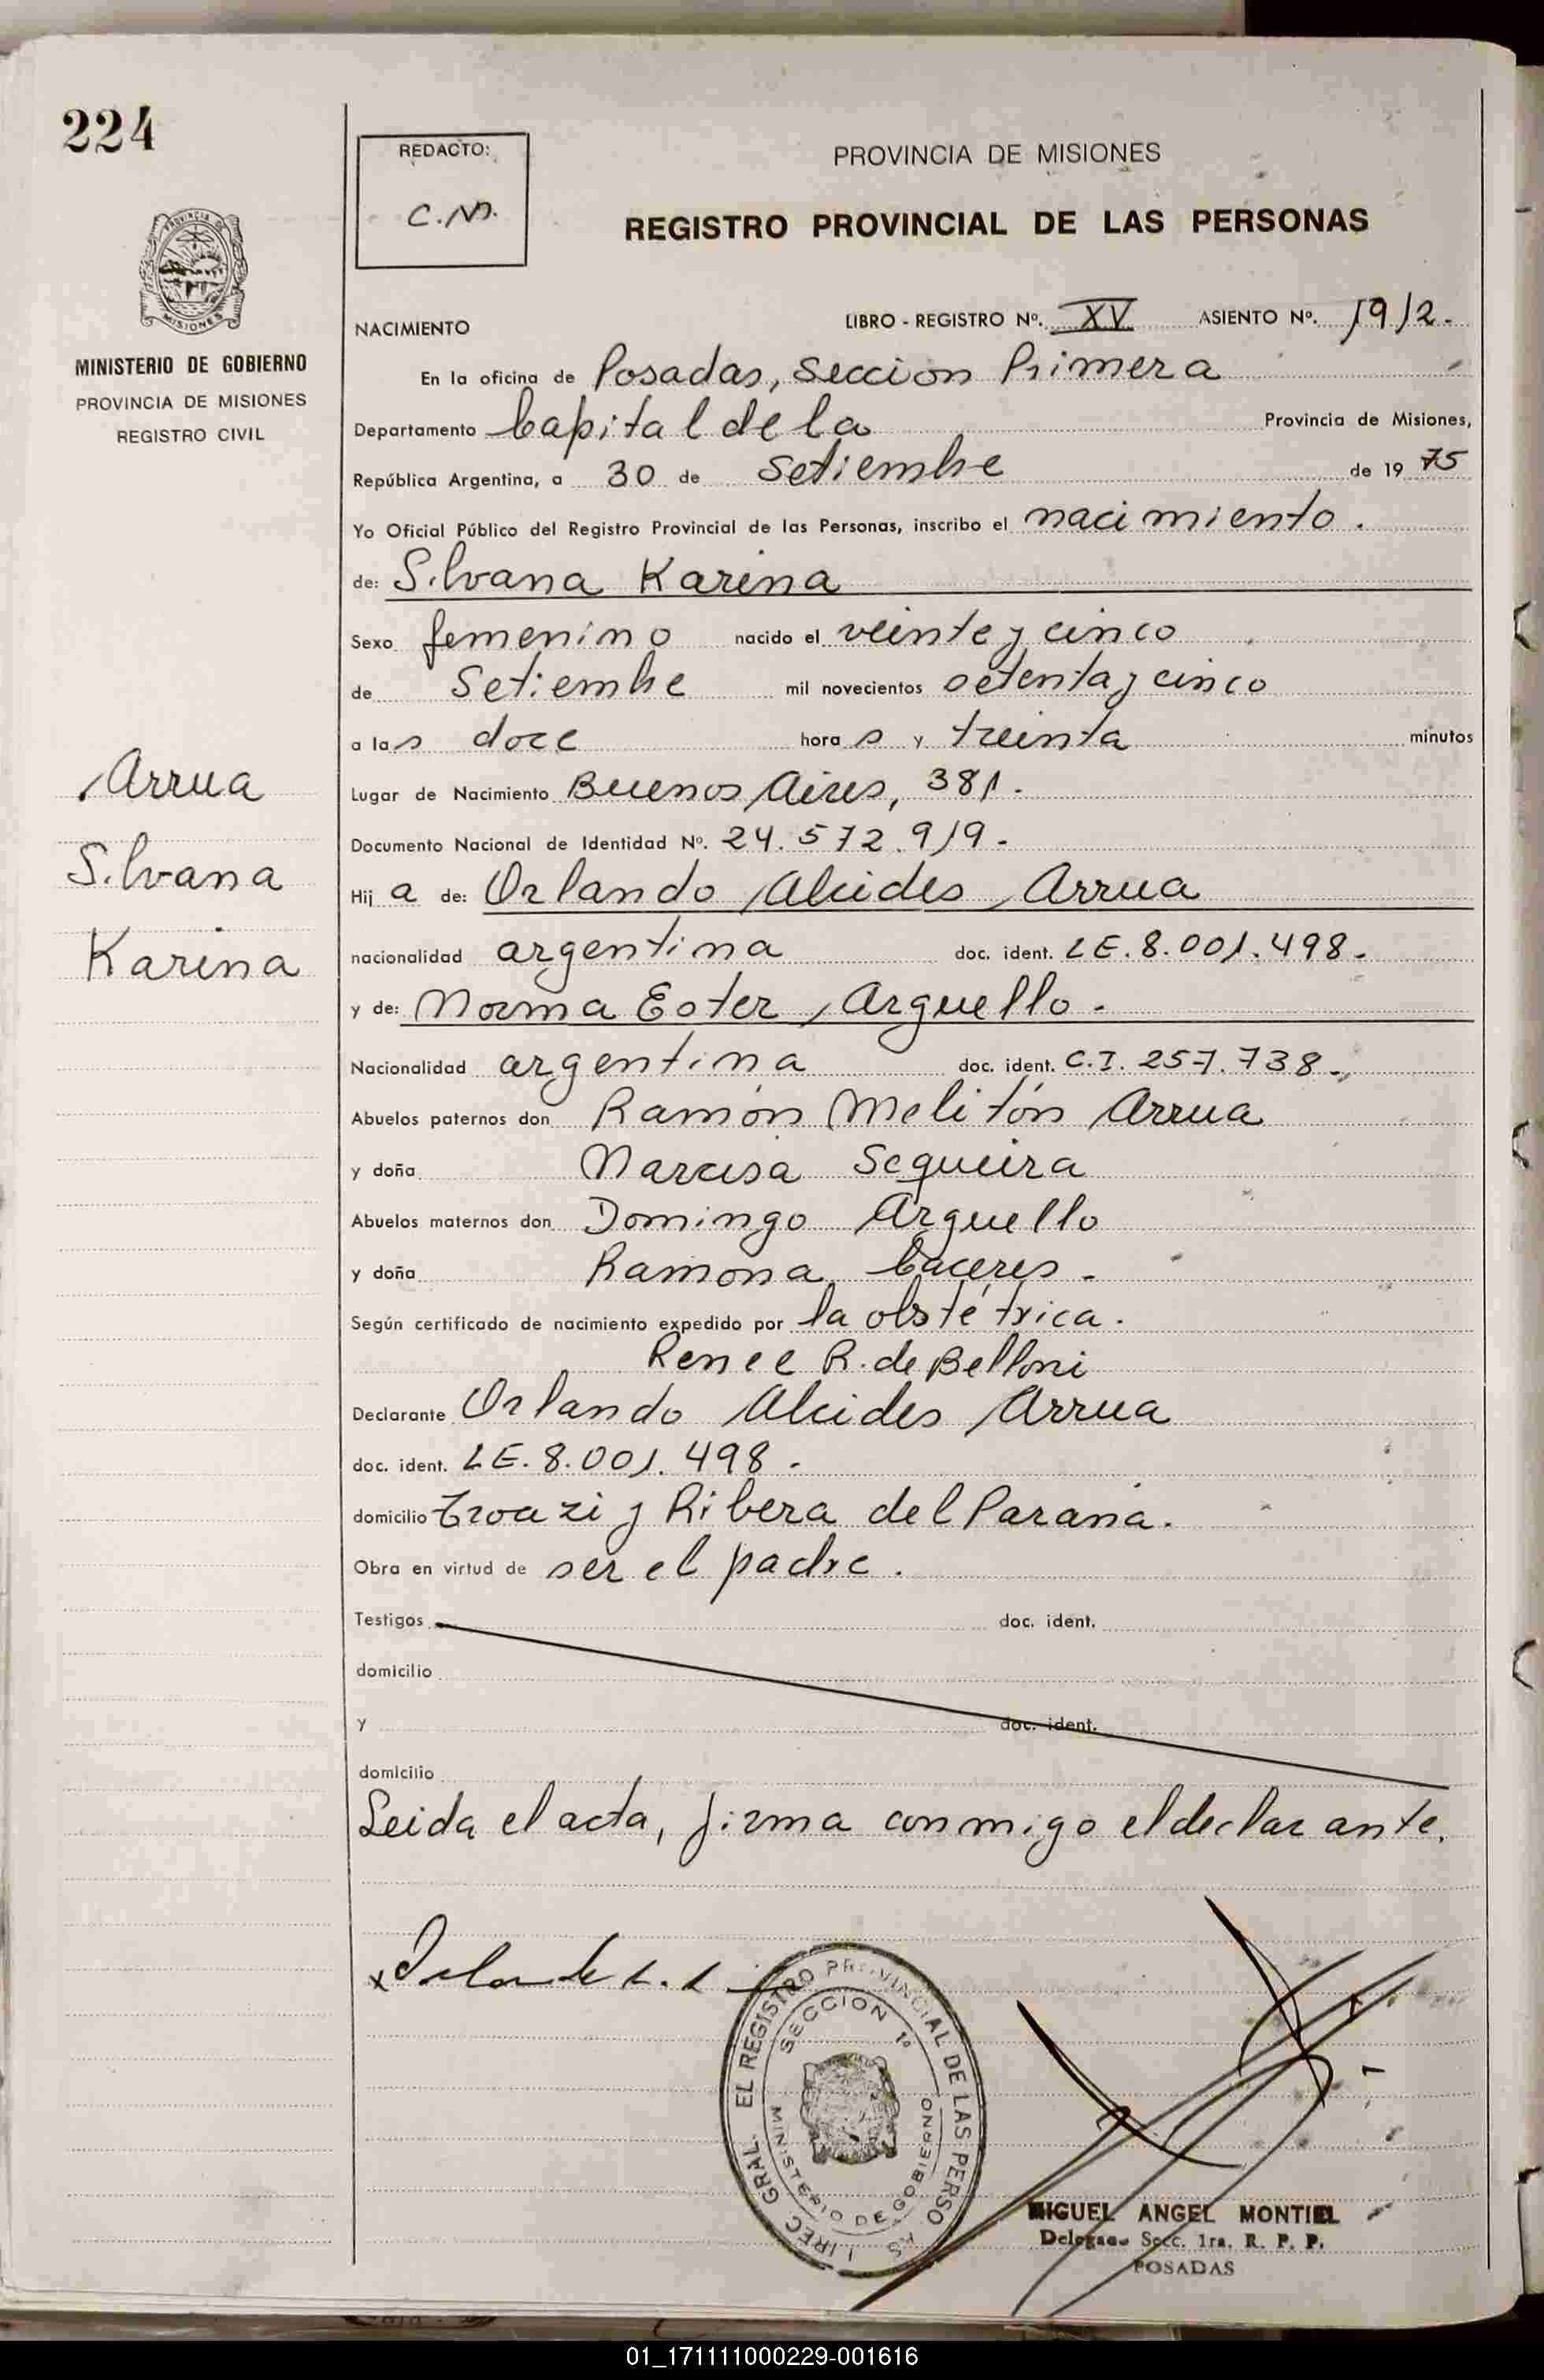 224
REDACTO:
C.M.
PROVINCIA DE MISIONES
REGISTRO PROVINCIAL DE LAS PERSONAS
MISIONES
MINISTERIO DE GOBIERNO
PROVINCIA DE MISIONES
REGISTRO CIVIL
NACIMIENTO LIBRO - REGISTRO Nº. XV ASIENTO Nº. 1912.
En la oficina de Posadas, Seccion Primera
Departamento Capital de la Provincia de Misiones,
República Argentina, a 30 de Setiembre de 19 75
Yo Oficial Público del Registro Provincial de las Personas, inscribo el nacimiento.
de: Silvana Karina
Sexo femenino nacido el veinte y cinco
de Setiembre mil novecientos setenta y cinco
a las doce horas y treinta minutos
Lugar de Nacimiento Buenos Aires, 381.
Documento Nacional de Identidad Nº. 24.572.919.
Hija de: Orlando Alcides Arrua
nacionalidad argentina doc. ident. LE. 8.001.498.
y de: Norma Ester Arguello.
Nacionalidad argentina doc. ident. C.I. 257.738.
Abuelos paternos don Ramón Melitón Arrua
y doña Narcisa Sequeira
Abuelos maternos don Domingo Arguello
y doña Ramona Caceres.
Según certificado de nacimiento expedido por la obstétrica.
Renee R. de Belloni
Declarante Orlando Alcides Arrua
doc. ident. LE. 8.001.498.
domicilio y Ribera del Parana.
Obra en virtud de ser el padre.
Testigos doc. ident.
domicilio
y doc. ident.
domicilio
Leida el acta, firma conmigo el declarante.
Arrua
Silvana
Karina
EL REGISTRO PROVINCIAL DE LAS PERSONAS
SECCION 1ª
MINISTERIO DE GOBIERNO
GRAL.
MIGUEL ANGEL MONTIEL
Delegado Secc. 1ra. R. P. P.
POSADAS
01_171111000229-001616